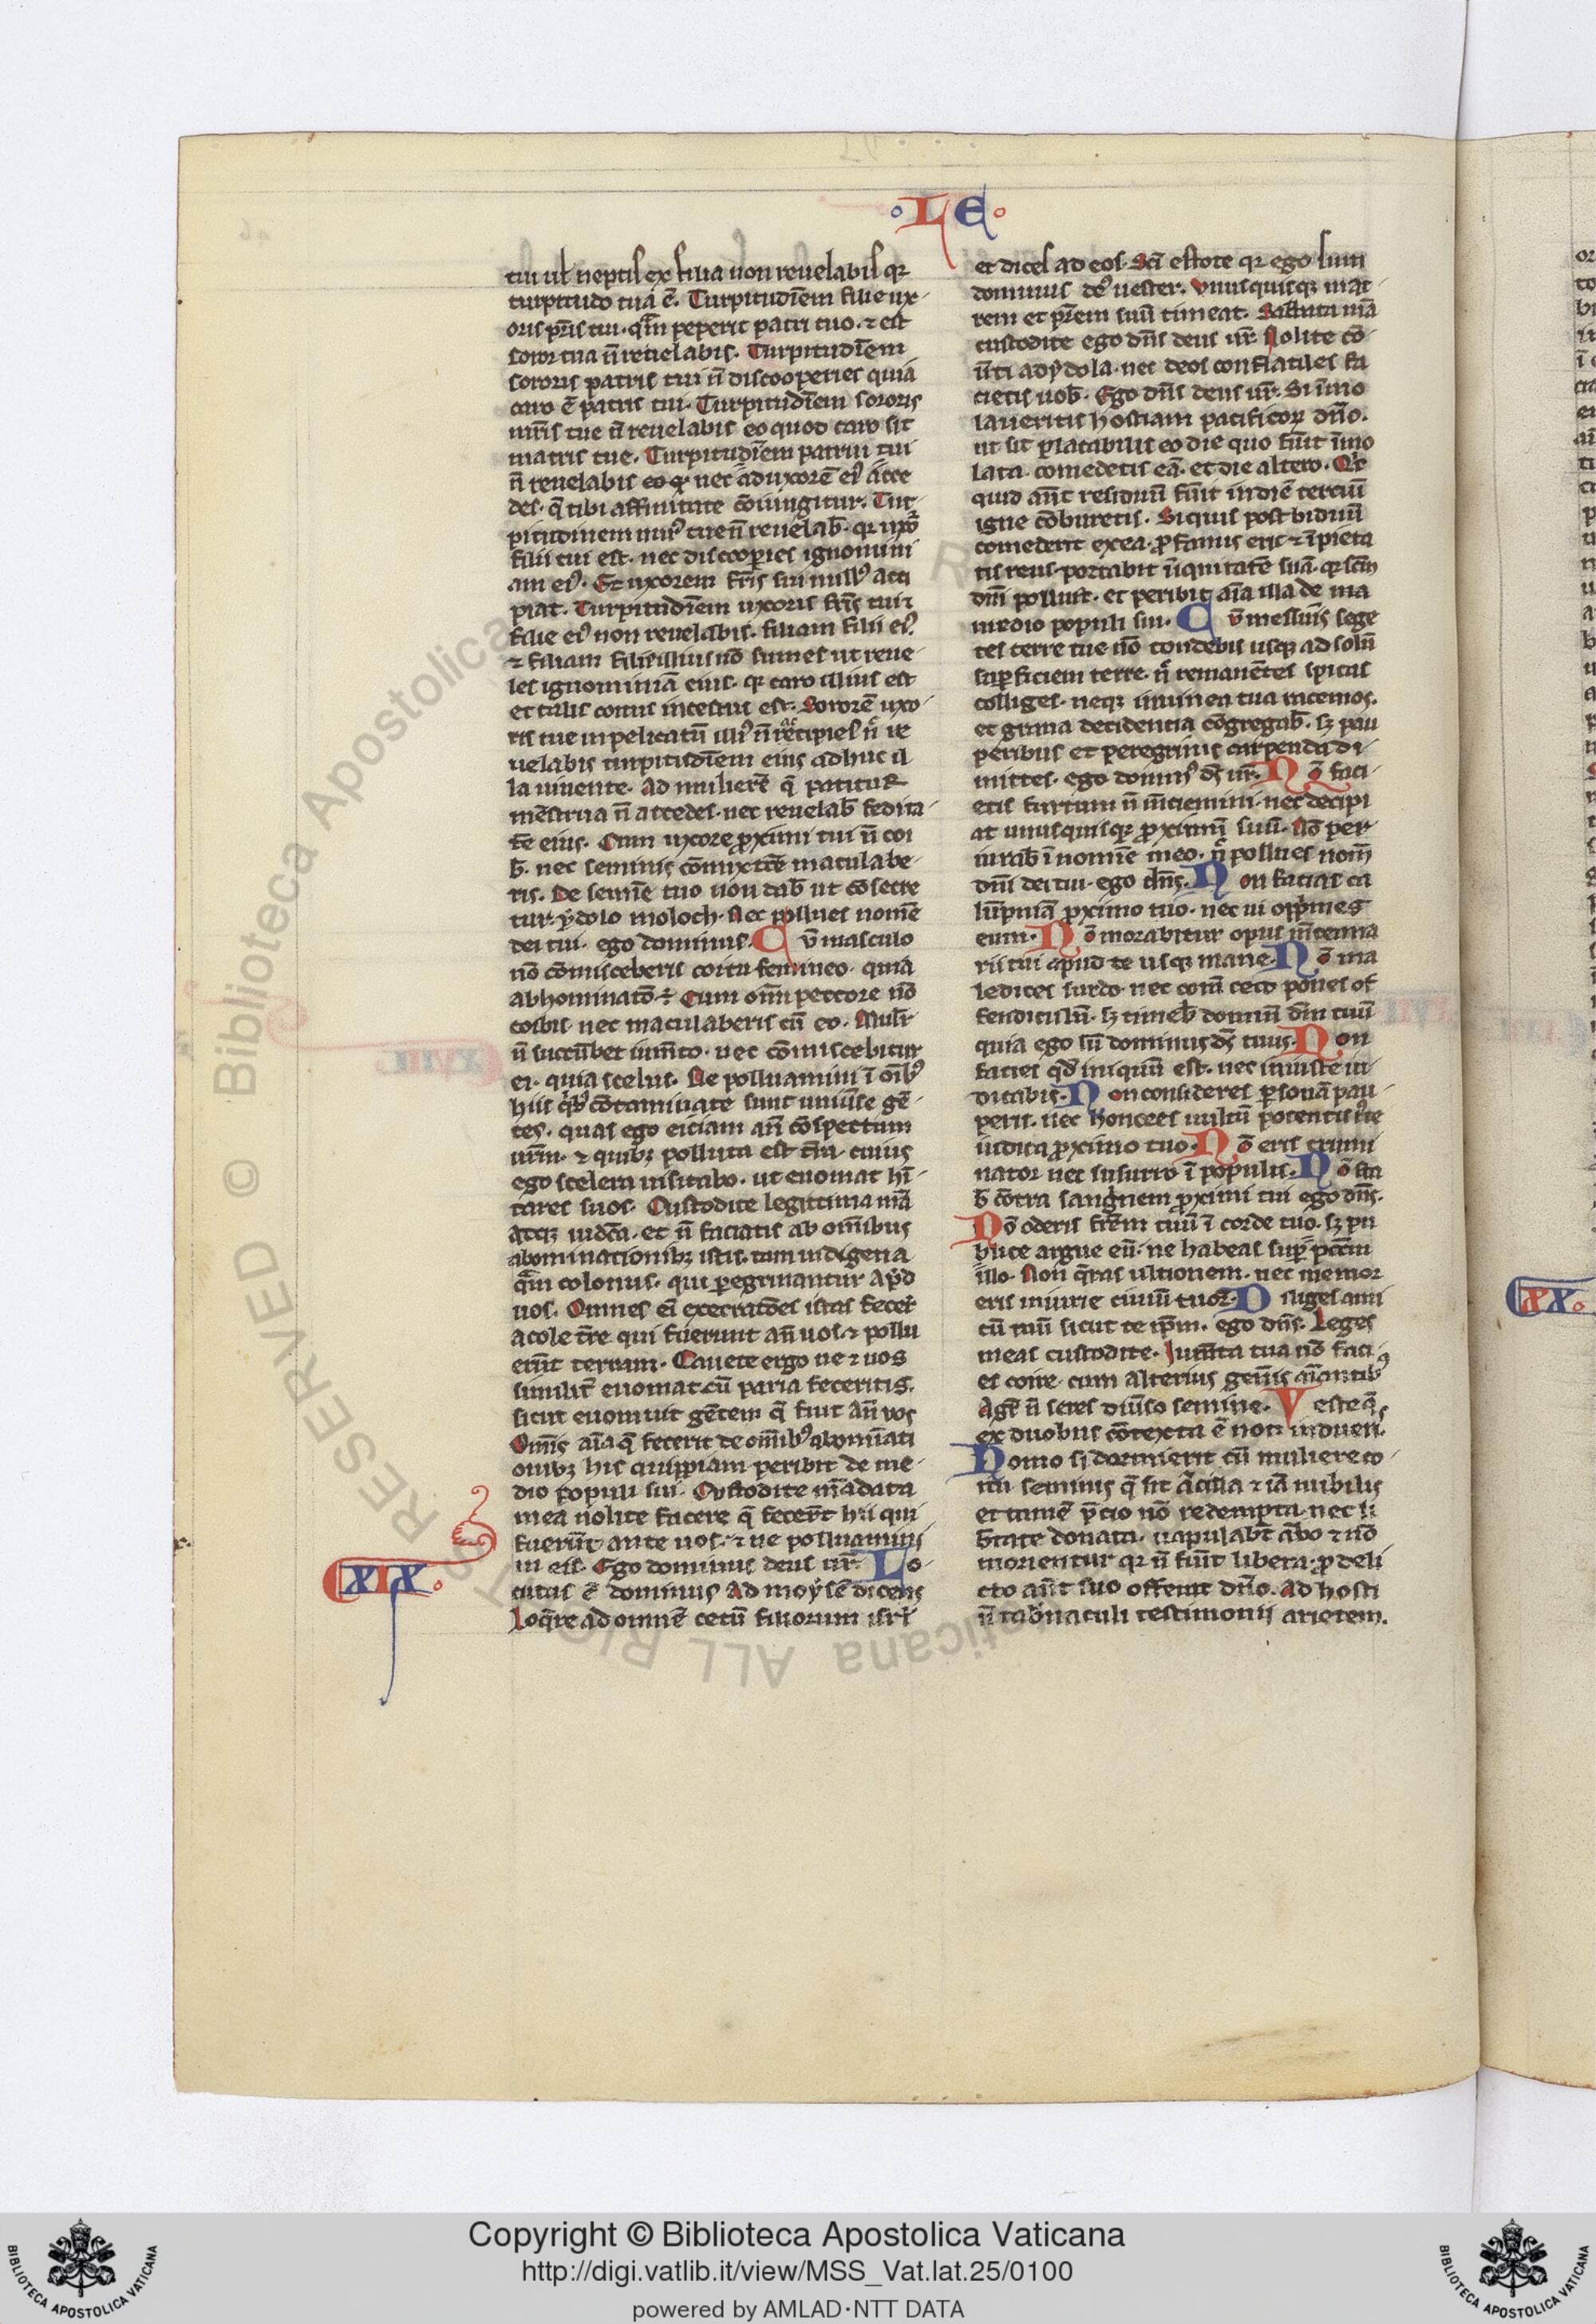 LE
tui ul̕ neptis ex filia non revelabis qr
turpitudo tua ē. Turpitudīem filie ux-
oris pr̄is tui. quā peperit patri tuo. ⁊ est
soror tua n̄ revelabis. Turpitudīem
sororis patris tui n̄ discooperies quia
caro ē patris tui. Turpitudīem sororis
mr̄is tue n̄ revelabis eo quod caro sit
matris tue. Turpitudīem patrui tui
n̄ revelabis nec ad uxorē eiꝰ acce
des. q̄ tibi affinitate cōiungitur. Tur-
pitudinem nurꝰ tue n̄ revelab̄. qr uxor
filii tui est. nec discooperies ignomini
am eiꝰ. Et uxorem fr̄is sui nullꝰ acci
piat. Turpitudīem uxoris fr̄is tui ⁊
filie eiꝰ non revelabis. filiam filii eiꝰ.
⁊ filiam filie illius nō sumes ut reve
les ignominiā eius. qr caro illius est
et talis coitus incestus est. Sororē uxo
ris tue in pelicatū illiꝰ n̄ recipies n̄ re
velabis turpitudīem eius adhuc il
la vivente. Ad mulierē q̄ patitur
mēstrua n̄ accedes. nec revelab̄ fedita-
tē eius. Cum uxore ꝓximi tui n̄ coi
b̄. nec seminis cōmixtiōe maculabe-
ris. De semīe tuo non dab̄ ut cōsecre
tur ydolo moloch. Nec pollues nomē
dei tui. ego dominus. Cū masculo
nō cōmisceberis coitu femineo. quia
abhominatō ē. Cum omī peccore nō
coibis nec maculaberis cū eo. Mulīr
n̄ succūbet iumēto. nec cōmiscebitur
ei. quia scelus. Ne polluamini ī oībꝰ
hiis qͥbꝰ cōtaminate sunt univēse gē-
tes. quas ego eiciam an̄ cōspectum
urm̄. ⁊ quibꝫ polluta est tr̄a. cuius
ego scelera visitabo. ut evomat hī-
tares suos. Custodite legittima mā
atqꝫ iudica. et n̄ faciatis ab omībus
abominationibꝫ istis. tam indigena
qͣm colonus. qui ꝑegrinantur apd
vos. Omnes ei execratōes istas fecer̄t
acole tr̄e qui fuerunt an̄ vos. ⁊ pollu
erūt terram. Cavete ergo ne ⁊ vos
similit̄ evomat cū paria feceritis.
sicut evomuit gētem q̄ fuit an̄ vos
Omīs aīa q̄ fecerit de omībꝰ abominati
onibꝫ his quippiam peribit de me-
dio populi sui. Custodite mādata
mea nolite facere q̄ fecer̄t hii qui
fuerūt ante vos. ⁊ ne polluamini
in eis. Ego dominus deus ur̄. Lo-
XIX.
cutus ē dominus ad moysē dicens
Loqr̄e ad omnē cetū filiorum isrl̄
et dices ad eos. Scī estote qr ego sum
dominus deꝰ vester. Unusquisqꝫ mat-
rem et pr̄em suū timeat. Sabbata mā
custodite ego dn̄s deus ur̄. Nolite cō-
ūti ad ydola. nec deos conflatiles fa
cietis vob̄. Ego dn̄s deus ur̄. Si imo
laveritis hostiam pacificoꝝ dn̄o.
ut sit placabilis eo die quo fūit īmo
lata. comedetis eā. et die altero. Qͥc
quid aūt residuū fūit in diē terciū
igne cōburetis. Si quis post biduū
comederit ex ea. ꝓfanus eris ⁊ īpieta
tis reus. portabit īiquitatē suā. qr scm̄
dn̄i polluit. et peribit aīa illa de ma
medio populi sui. Cū messuīs sege
tes terre tue nō tondebis usqꝫ ad solū
suꝑficiem terre. n̄ remanētes spicas
colliges. neqꝫ in vinea tua racemos.
et grana decidentia cōgregab̄. sꝫ pau
peribus et peregrinis carpenda di-
mittes. ego dominꝰ ds̄ ur̄. Nō faci-
etis furtum n̄ mēciemini. nec decipi
at unusquisqꝫ ꝓximū suū. Nō per-
iurab̄ ī nomīe meo. n̄ pollues nom̄
dn̄i dei tui. ego dn̄s. Non facias ca
lūpniā ꝓximo tuo. nec vi opp̄mes
eum. Nō morabitur opus mēcenna
rii tui apud te usqꝫ mane. Nō ma
ledices surdo. nec corā ceco pones of
fendiculū. sꝫ timeb̄ dominū dm̄ tuū
quia ego sū dominus ds̄ tuus. Non
facies qd̄ iniquū est. nec iniuste iu-
dicabis. Non consideres ꝑsonā pau-
peris. nec honores vultū potentis iuste
iudica ꝓximo tuo. Nō eris crimi
nator nec susurro ī populis. Nō sta
b̄ cōtra sanguinem ꝓximi tui ego dn̄s.
Nō oderis fr̄em tuū ī corde tuo. sꝫ pu
blice argue eū. ne habeas suꝑ pccm̄
illo. Non q̄ras ultionem. nec memor
eris iniurie civiū tuoꝝ. Diliges ami
cū tuū sicut te ip̄m. ego dn̄s. Leges
meas custodite. Iumēta tua nō faci-
es coire cum alterius genīs aīantibꝰ
Agr̄ n̄ seres divēso semine. Veste q̄
ex duobus cōtexta ē non induēis.
Homo si dormierit cū muliere co-
itu seminis q̄ sit ācilla ⁊ iā nubilis
et tamē p̄cio nō redempta nec li
b̄tate donata. vapulabt̄ abo ⁊ nō
morientur qr n̄ fūit libera. ꝓ deli
cto aūt suo offeret dn̄o. ad hosti
ū tab̄naculi testimonii arietem.
XX.
Copyright © Biblioteca Apostolica Vaticana
http://digi.vatlib.it/view/MSS_Vat.lat.25/0100
powered by AMLAD·NTT DATA